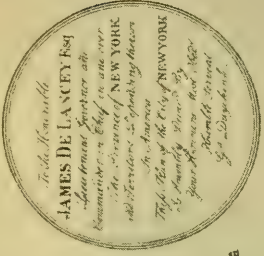 To the Honourable
JAMES DE LANCEY Esq
Lieutenant Governor and
Commander in Chief in and over
the Province of NEW YORK
and Territories depending thereon
in America
This Plan of the City of NEW YORK
is Humbly
Your Honours Most
Humble Servant